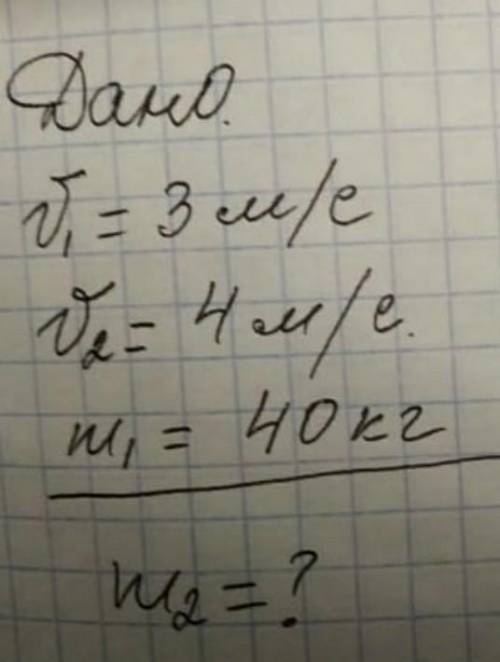 Дано.
v₁ = 3 м/с
v₂ = 4 м/с.
m₁ = 40 кг
m₂ = ?